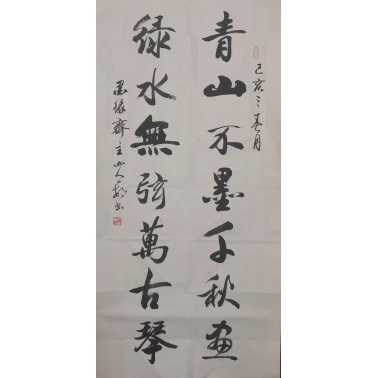 青山不墨千秋画
己亥之春月
绿水無弦萬古琴
墨缘齋主山人一郝书